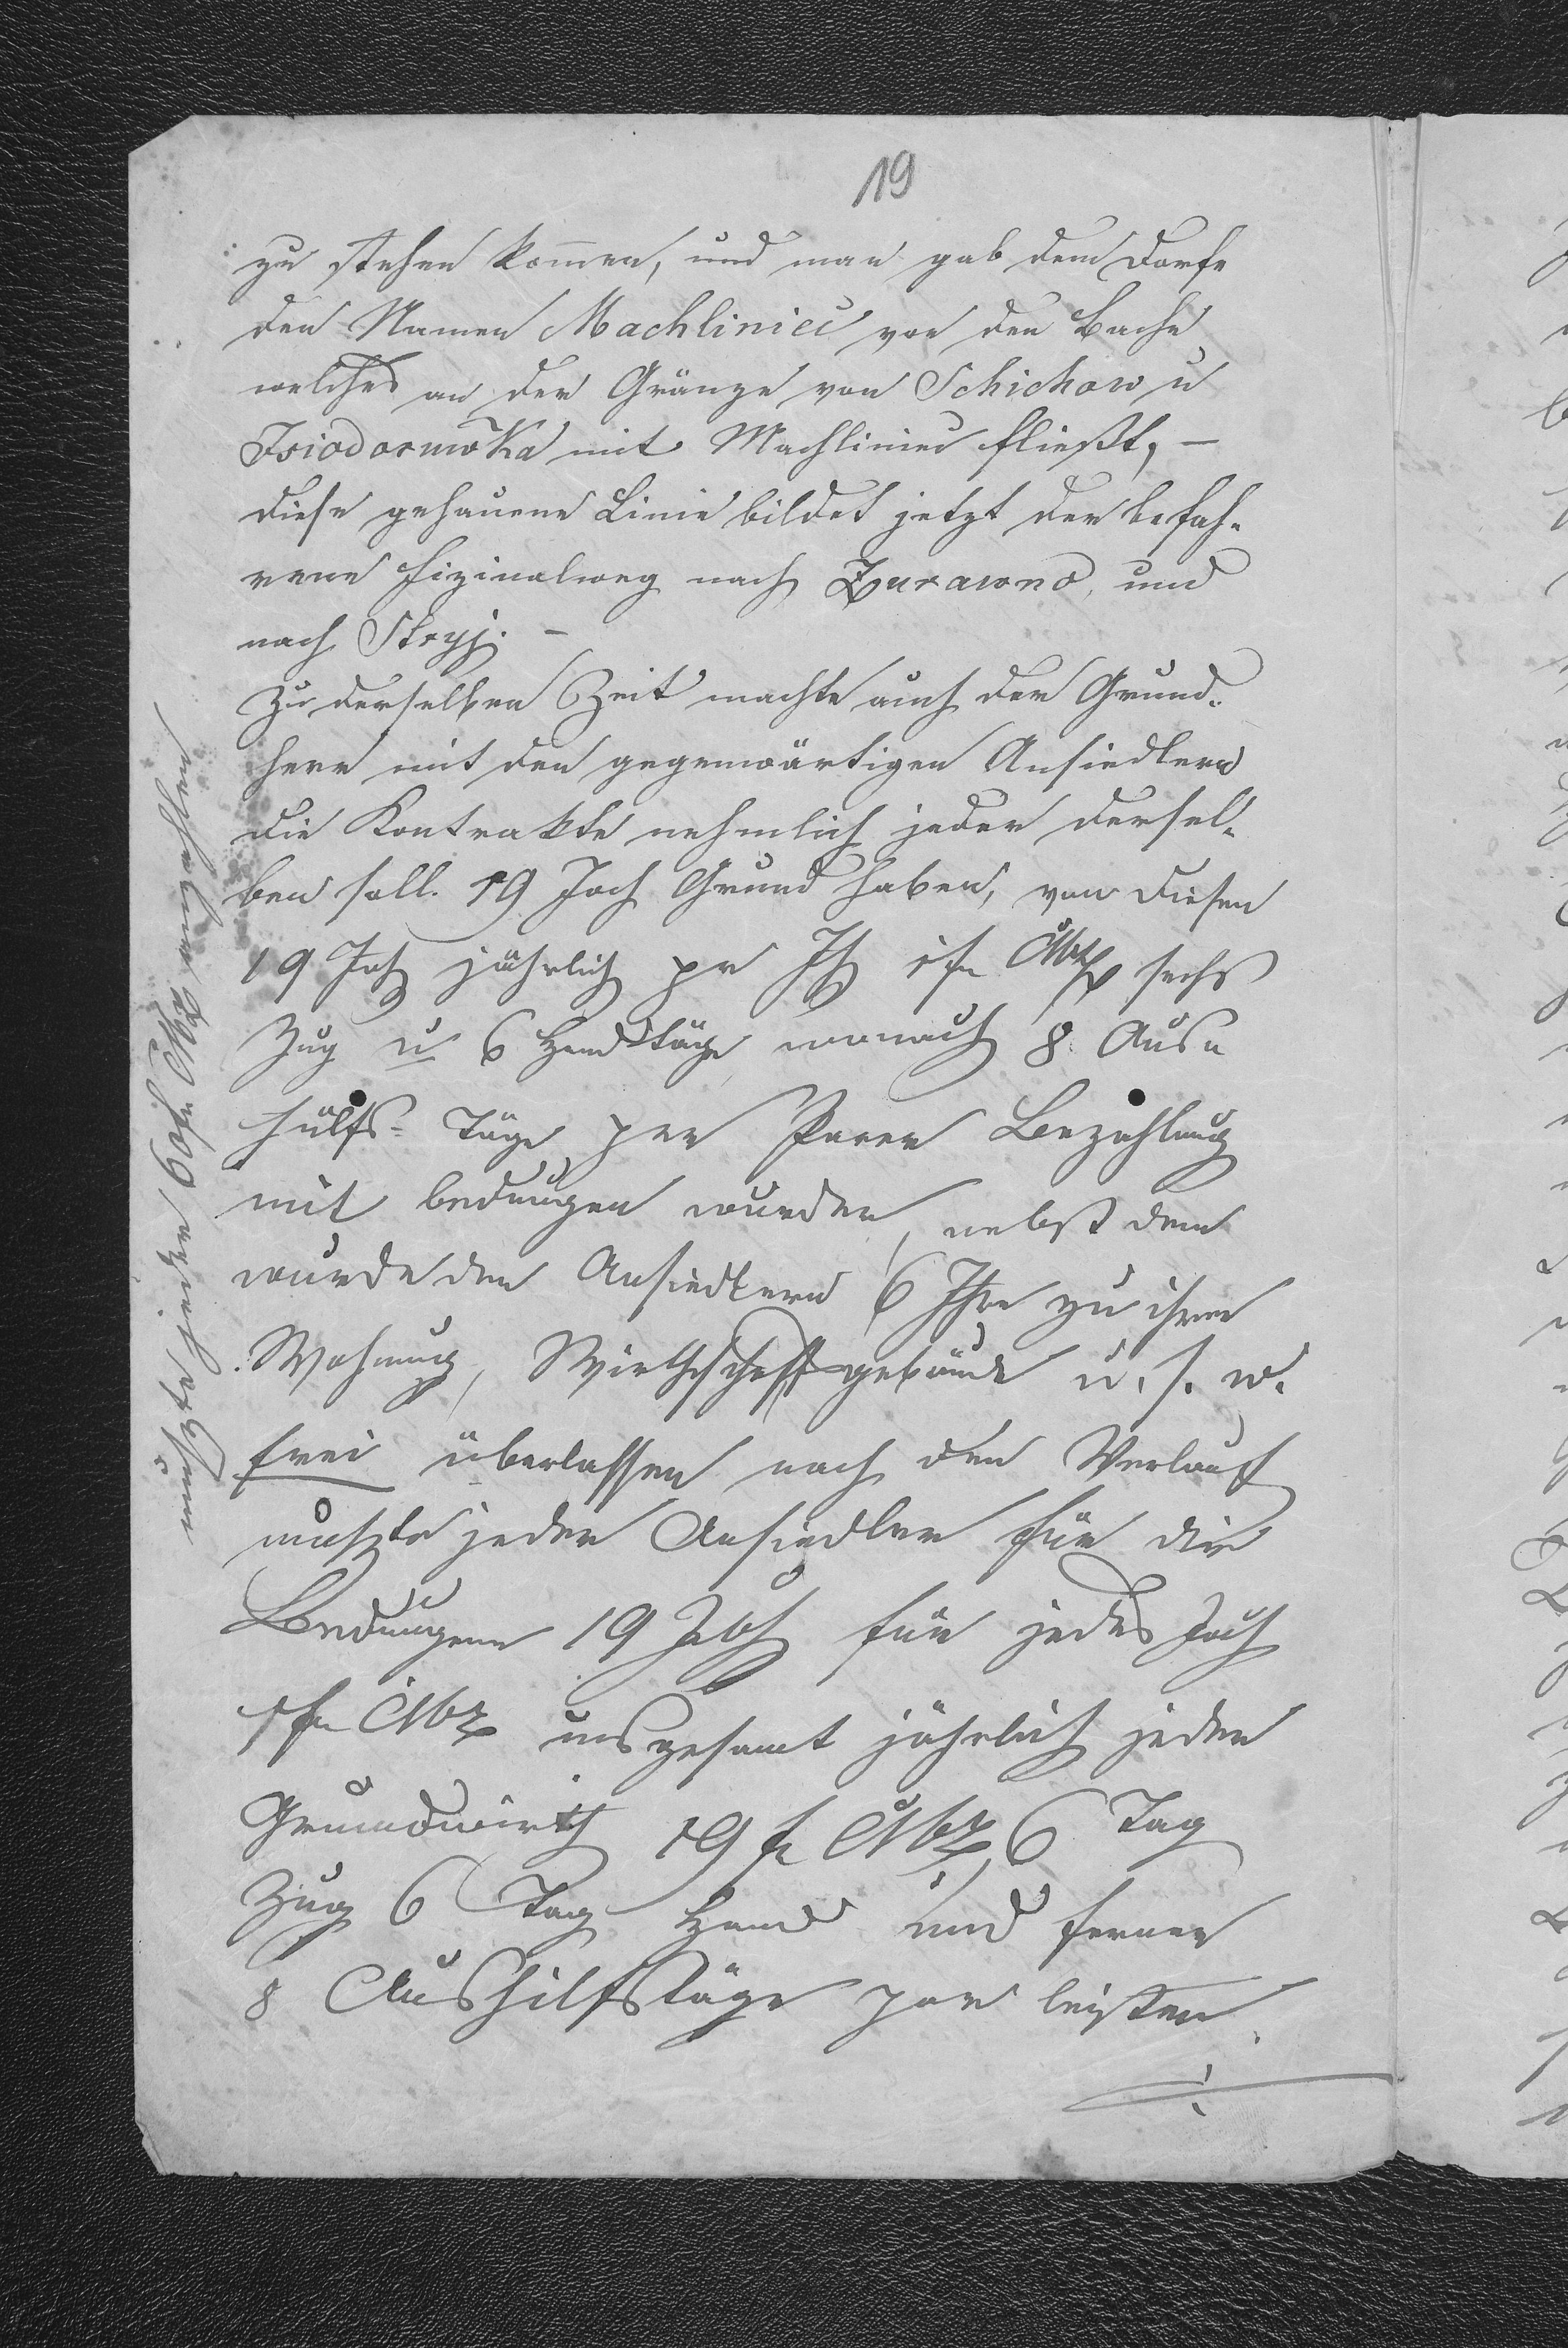 19
zu stehen kommen, und man gab dem Dorfe
den Namen Machliniec von den Bache
welches an der Gränze von Schichow u
Isiodorowka mit Machliniec fließt, –
diese gehauene Linie bildet jetzt der befah-
rene Fizinalweg nach Zurawno, und
nach Stryj. –
Zu derselben Zeit machte auch der Grund-
herr mit den gegenwärtigen Ansiedlern
die Kontrakte nehmlich jeder dersel-
ben soll 19 Joch Grund haben, von diesen
19 Joch jährlich pr Jh 1 fr CMz sechs
Zug u 6 Handtäge wonach 8 Aus-
hülfs-Täge per Parer Bezahlung
mit bedungen wurden, nebst dem
wurde den Ansiedlern 6 Jhre zu ihrer
Wohnung, Wirthschaftgebäude u. s. w.
frei überlassen nach den Verlauf
muszte jeder Ansiedler für die
Bedungene 19 Joch für jedes Joch
1 fr CMz insgesamt jährlich jeder
Grundwirth 19 fr CMz, 6 Tag
Zug 6 Tag Hand und ferner
8 Aushilfstäge par leisten.